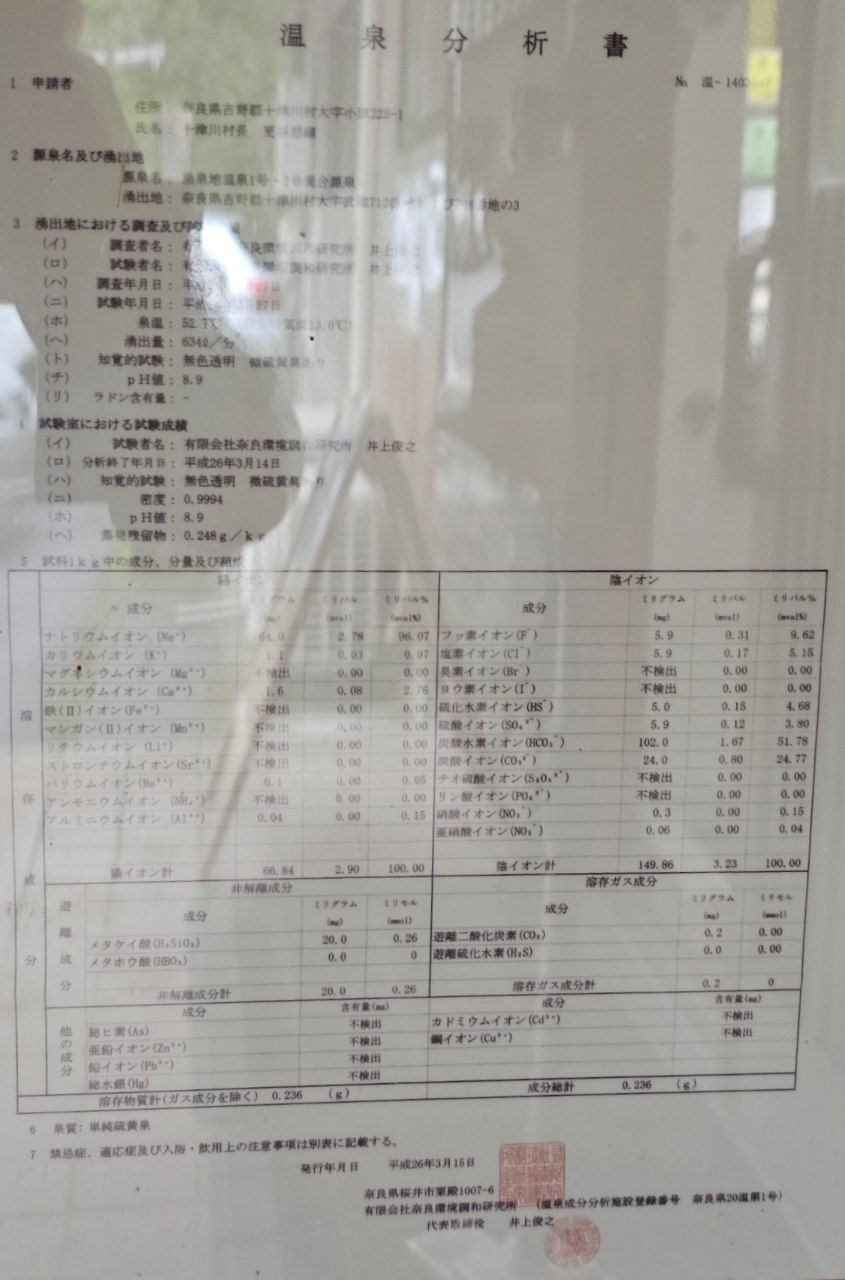 温泉分析書
1 申請者
No. 温-1403
住所： 奈良県吉野郡十津川村大字小 225-1
氏名： 十津川村長 更谷
2 源泉名及び湧出地
源泉名： 湯泉地温泉1号・2号混合源泉
湧出地： 奈良県吉野郡十津川村大字武蔵712番 の3
3 湧出地における調査及び
(イ) 調査者名： 奈良環境調和研究所 井上俊之
(ロ) 試験者名： 境調和研究所 井上俊之
(ハ) 調査年月日： 平 27日
(ニ) 試験年月日： 平 27日
(ホ) 泉温： 52.7℃ 気温13.0℃)
(ヘ) 湧出量： 634ℓ/分
(ト) 知覚的試験： 無色透明 微硫黄臭あり
(チ) pH値： 8.9
(リ) ラドン含有量： -
4 試験室における試験成績
(イ) 試験者名： 有限会社奈良環境調和研究所 井上俊之
(ロ) 分析終了年月日： 平成26年3月14日
(ハ) 知覚的試験： 無色透明 微硫黄臭あり
(ニ) 密度： 0.9994
(ホ) pH値： 8.9
(ヘ) 蒸発残留物： 0.248g/kg
5 試料1kg中の成分、分量及び組成
溶存成分
陽イオン 陰イオン
成分 ミリグラム(mg) ミリバル(mval) ミリバル%(mval%) 成分 ミリグラム(mg) ミリバル(mval) ミリバル%(mval%)
ナトリウムイオン(Na⁺) 64.0 2.78 96.07 フッ素イオン(F⁻) 5.9 0.31 9.62
カリウムイオン(K⁺) 1.1 0.03 0.97 塩素イオン(Cl⁻) 5.9 0.17 5.15
マグネシウムイオン(Mg²⁺) 不検出 0.00 0.00 臭素イオン(Br⁻) 不検出 0.00 0.00
カルシウムイオン(Ca²⁺) 1.6 0.08 2.76 ヨウ素イオン(I⁻) 不検出 0.00 0.00
鉄(Ⅱ)イオン(Fe²⁺) 不検出 0.00 0.00 硫化水素イオン(HS⁻) 5.0 0.15 4.68
マンガン(Ⅱ)イオン(Mn²⁺) 不検出 0.00 0.00 硫酸イオン(SO₄²⁻) 5.9 0.12 3.80
リチウムイオン(Li⁺) 不検出 0.00 0.00 炭酸水素イオン(HCO₃⁻) 102.0 1.67 51.78
ストロンチウムイオン(Sr²⁺) 不検出 0.00 0.00 炭酸イオン(CO₃²⁻) 24.0 0.80 24.77
バリウムイオン(Ba²⁺) 0.1 0.00 0.05 チオ硫酸イオン(S₂O₃²⁻) 不検出 0.00 0.00
アンモニウムイオン(NH₄⁺) 不検出 0.00 0.00 リン酸イオン(PO₄³⁻) 不検出 0.00 0.00
アルミニウムイオン(Al³⁺) 0.04 0.00 0.15 硝酸イオン(NO₃⁻) 0.3 0.00 0.15
亜硝酸イオン(NO₂⁻) 0.06 0.00 0.04
陽イオン計 66.84 2.90 100.00 陰イオン計 149.86 3.23 100.00
遊離成分
非解離成分 溶存ガス成分
成分 ミリグラム(mg) ミリモル(mmol) 成分 ミリグラム(mg) ミリモル(mmol)
メタケイ酸(H₂SiO₃) 20.0 0.26 遊離二酸化炭素(CO₂) 0.2 0.00
メタホウ酸(HBO₂) 0.0 0 遊離硫化水素(H₂S) 0.0 0.00
非解離成分計 20.0 0.26 溶存ガス成分計 0.2 0
他の成分
成分 含有量(mg) 成分 含有量(mg)
総ヒ素(As) 不検出 カドミウムイオン(Cd²⁺) 不検出
亜鉛イオン(Zn²⁺) 不検出 銅イオン(Cu²⁺) 不検出
鉛イオン(Pb²⁺) 不検出
総水銀(Hg) 不検出
溶存物質計(ガス成分を除く) 0.236 (g) 成分総計 0.236 (g)
6 泉質：単純硫黄泉
7 禁忌症、適応症及び入浴・飲用上の注意事項は別表に記載する。
発行年月日 平成26年3月15日
奈良県桜井市粟殿1007-6
有限会社奈良環境調和研究所 (温泉成分分析施設登録番号 奈良県20温第1号)
代表取締役 井上俊之